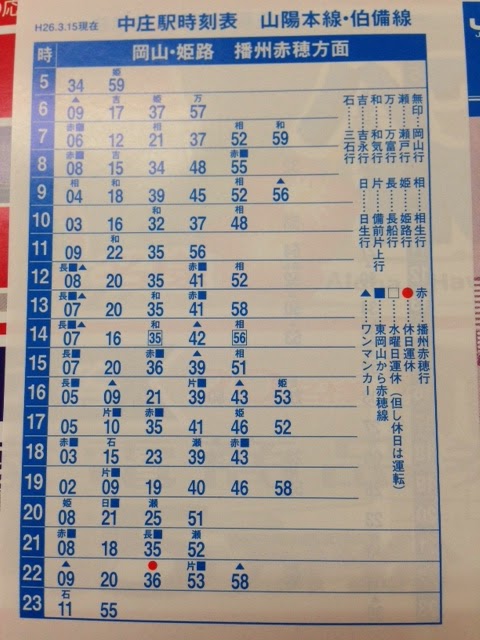 H26.3.15現在 中庄駅時刻表 山陽本線・伯備線
時 岡山・姫路 播州赤穂方面
姫
5 34 59
▲ 吉 姫 万
6 09 17 37 57
赤■ 相 相 和
7 06 12 21 37 52 59
赤■ 吉 赤■
8 08 15 34 48 55
相 和 相 ▲
9 04 18 39 45 52 56
和 相
10 03 16 32 37 48
和
11 09 22 35 56
長■▲ 赤■ 相
12 08 20 35 41 52
長■▲ 和 赤■
13 07 20 35 41 58
長■▲ 和 ▲ 相
14 07 16 35 42 56
長■ 赤■ 相
15 07 20 36 39 51
長■ ▲ 片■ ▲ 姫
16 05 09 21 39 43 53
片■ 赤■ 姫
17 05 10 35 41 46 52
赤■ 石 瀬 赤■
18 03 15 23 39 43
片■
19 02 09 19 40 46 58
姫 日■ 瀬
20 08 21 25 51
赤■ 長■ 瀬
21 08 18 35 52
▲ ● 片■ ▲
22 09 20 36 53 58
石
23 11 55
無印…岡山行
瀬……瀬戸行
万……万富行
和……和気行
吉……吉永行
石……三石行
相……相生行
姫……姫路行
長……長船行
片……備前片上行
日……日生行
赤……播州赤穂行
●……休日運休
□……水曜日運休(但し休日は運転)
■……東岡山から赤穂線
▲……ワンマンカー